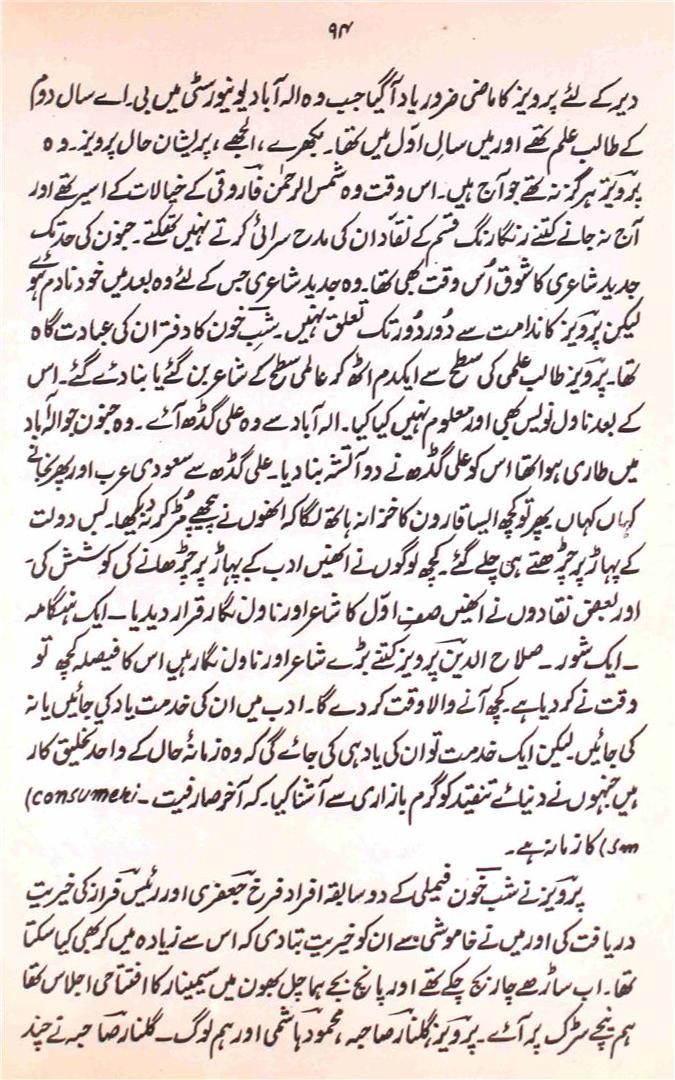 ۹۴
دیر کے لئے پرویز کا ماضی ضرور یاد آگیا جب وہ الہ آباد یونیورسٹی میں بی۔اے سال دوم
کے طالب علم تھے اور میں سالِ اوّل میں تھا۔ بکھرے، الجھے، پریشان حال پرویز۔ وہ
پرویز ہرگز نہ تھے جو آج ہیں۔ اس وقت وہ شمس الرحمٰن فاروقی کے خیالات کے اسیر تھے اور
آج نہ جانے کتنے رنگا رنگ قسم کے نقاد ان کی مدح سرائی کرتے نہیں تھکتے۔ جنون کی حد تک
جدید شاعری کا شوق اُس وقت بھی تھا۔ وہ جدید شاعری جس کے لئے وہ بعد میں خود نادم ہوئے
لیکن پرویز کا ندامت سے دُور دُور تک تعلق نہیں۔ شب خون کا دفتر ان کی عبادت گاہ
تھا۔ پرویز طالب علمی کی سطح سے ایکدم اٹھ کر عالمی سطح کے شاعر بن گئے یا بنا دئے گئے۔ اس
کے بعد ناول نویس بھی اور معلوم نہیں کیا کیا۔ الہ آباد سے وہ علی گڈھ آئے۔ وہ جنون جو الہ آباد
میں طاری ہوا تھا اس کو علی گڈھ نے دو آتشہ بنا دیا۔ علی گڈھ سے سعودی عرب اور پھر نجانے
کہاں کہاں پھر تو کچھ ایسا قارون کا خزانہ ہاتھ لگا کہ انھوں نے پیچھے مُڑ کر نہ دیکھا۔ بس دولت
کے پہاڑ پر چڑھتے ہی چلے گئے۔ کچھ لوگوں نے انھیں ادب کے پہاڑ پر چڑھانے کی کوشش کی۔
اور بعض نقادوں نے انھیں صفِ اوّل کا شاعر اور ناول نگار قرار دیدیا۔ ایک ہنگامہ
۔ ایک شور۔ صلاح الدین پرویز کتنے بڑے شاعر اور ناول نگار ہیں اس کا فیصلہ کچھ تو
وقت نے کر دیا ہے۔ کچھ آنے والا وقت کر دے گا۔ ادب میں ان کی خدمت یاد کی جائیں یا نہ
کی جائیں۔ لیکن ایک خدمت تو ان کی یاد ہی کی جائے گی کہ وہ زمانۂ حال کے واحد تخلیق کار
ہیں جنہوں نے دنیائے تنقید کو گرم بازاری سے آشنا کیا۔ کہ آخر صارفیت۔ (consumeri
sm) کا زمانہ ہے۔
پرویز نے شب خون فیملی کے دو سابقہ افراد فرخ جعفری اور رئیس فراز کی خیریت
دریافت کی اور میں نے خاموشی سے ان کو خیریت بتا دی کہ اس سے زیادہ میں کر بھی کیا سکتا
تھا۔ اب ساڑھے چار بج چکے تھے اور پانچ بجے ہماچل بھون میں سیمینار کا افتتاحی اجلاس تھا
ہم نیچے سڑک پر آئے۔ پرویز، گلنار صاحبہ، محمود ہاشمی اور ہم لوگ۔ گلنار صاحبہ نے چند